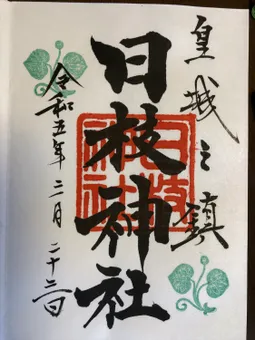 皇城之鎮
日枝神社
日枝神社
令和五年二月二十二日